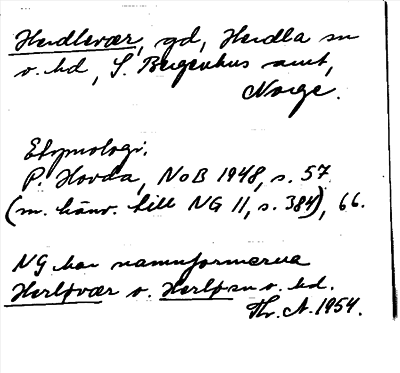 Herdlevær, gd, Herdla sn
o. hd, S. Bergenhus amt,
Norge.
Etymologi.
P. Hovda, NoB 1948, s. 57
(m. hänv. till NG 11, s. 384), 66.
NG har namnformerna
Herløvær o. Herlø sn o. hd.
Th. A. 1954.